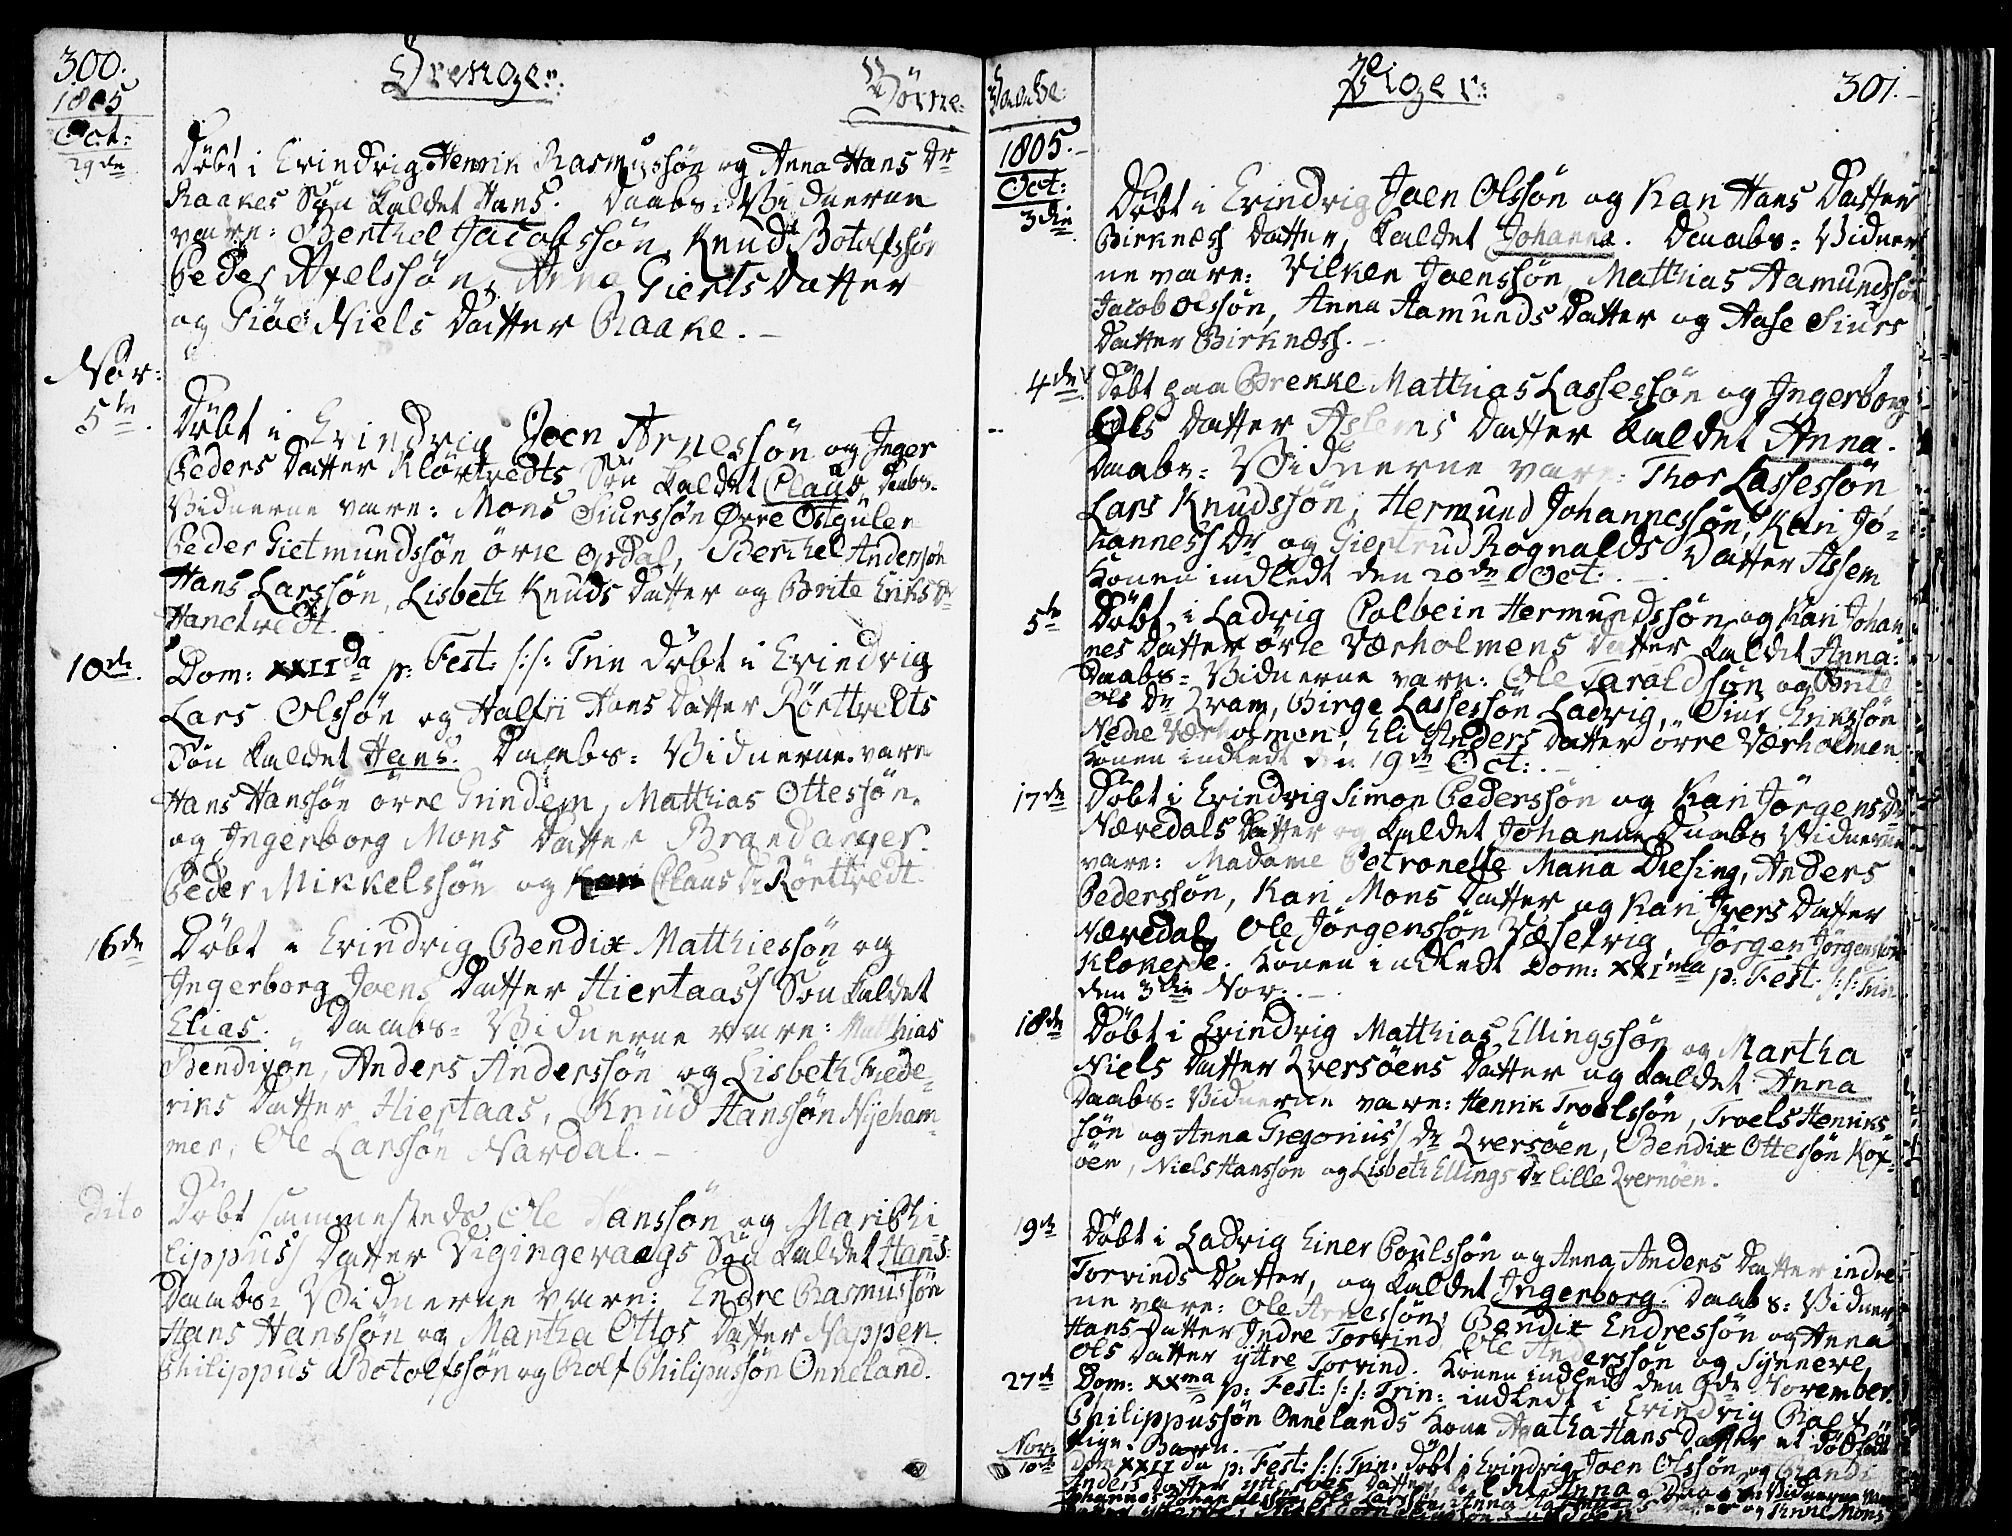 300.
Drenge:
Børne-
1805
Oct:
29de
Døbt i Evindvig Henrik Rasmussøn og Anna Hans Dr
Raakes Søn kaldet Hans. Daabs-Vidnerne
vare: Berthel Jacobssøn, Knud Botolfssøn
Peder Axelssøn, Anna Gierts Datter
og Giöe Niels Datter Raake. –
Nov:
5te
Døbt i Evindvig Joen Arnessøn og Inger
Peders Datter Klövtvedts Søn kaldet Claus. Daabs-
Vidnerne vare: Mons Siurssøn Övre Östgulen
Peder Gietmundssøn övre Opdal, Berthel Anderssøn
Hans Larssøn, Lisbeth Knuds Datter og Brite Eriks Dr
Hanetvedt.
10de
Dom: XXII da p: Fest: S: S: Trin døbt i Evindvig
Lars Olssøn og Halfri Hans Datter Rörttvedts
Søn kaldet Hans. Daabs-Vidnerne vare
Hans Hanssøn övre Grindem, Matthias Ottessøn,
og Ingerborg Mons Datter Brandanger.
Peder Mikkelssøn og Claus Dr Rörttvedt.
16de
Døbt i Evindvig Bendix Matthiessøn og
Ingerborg Joens Datter Hiertaass Søn kaldet
Elias. Daabs-Vidnerne vare: Matthias
Bendixøn, Anders Anderssøn og Lisbeth Frede-
riks Datter Hiertaas, Knud Hanssøn Nyeham-
mer, Ole Larssøn Nardal. –
Dito
Døbt sammesteds Ole Hanssøn og Mari Phi-
lippuss Datter Vigingevaags Søn kaldet Hans.
Daabs-Vidnerne vare: Endre Rasmussøn
Hans Hanssøn og Martha Ottos Datter Nappen.
Philippus Botolfssøn og Rolf Philipussøn Onneland.
Daabs:
Piger:
301.
1805.
Oct:
3die
Døbt i Evindvig Joen Olssøn og Kari Hans Datter
Birkness Datter, kaldet Johanna. Daabs-Vidner-
ne vare: Vilken Joenssøn, Matthias Aamundssøn
Jacob Olssøn, Anna Aamunds Datter og Aase Siurs
Datter Birkness. –
4de
Døbt paa Brekke Matthias Lassessøn og Ingerborg
Ols Datter Aslems Datter kaldet Anna.
Daabs-Vidnerne vare: Thor Lassessön
Lars Knudssøn, Hermund Johannessøn, Kari Jo-
hanness Dr og Giertrud Rognalds Datter Assem
Konen indledt den 20de Oct:
5te
Døbt i Ladvig Colbein Hermundssøn og Kari Johan-
nes Datter övre Værholmens Datter kaldet Anna:
Daabs-Vidnerne vare: Ole Taraldssøn og Brite
Ols Dr Kram, Birge Lassessøn Ladvig, Siur Erikssøn
Nedre Værholmen, Eli Anders Datter övre Værholmen
Konen indledt den 19de Oct: . –
17de
Døbt i Evindvig Simon Pederssøn og Kari Jörgens Dr
Næredals Datter og kaldet Johanna Daabs Vidnerne
vare: Madame Petronelle Maria Diesing, Anders
Pederssøn, Kari Mons Datter og Kari Ivers Datter
Næredal, Ole Jörgenssön Væsetvig, Jörgen Jörgenssøn
Klokerse. Konen indledt Dom: XXIma p: Fest: S: S: Trin
den 3die Nov: . –
18de
Døbt i Evindvig Matthias Ellingssøn og Martha
Niels Datter Qversöens Datter og kaldet Anna
Daabs-Vidnerne vare: Henrik Troelssøn, Troels Henriks-
søn og Anna Gregorius Dr Qversöen, Bendix Ottessøn Kox-
öen, Niels Hanssøn og Lisbeth Ellings Dr lille Qvernöen.
19de
Døbt i Ladvig Einer Poulssøn og Anna Anders Datter indre
Torvinds Datter, og kaldet Ingerborg. Daabs-Vidner-
ne vare: Ole Arnessøn, Bendix Endressøn og Anna
Hans Datter Indre Torvind Ole Anderssøn og Synneve
Ols Datter yttre Torvind. Konen indledt den 9de November.
27de
Dom: XXma p: Fest: S: S: Trin: indledt i Evindvig Rolf
Philippussøn Onnelands Kone Agatha Hans Datter et Dödfödt
Pige-Barn.
Nov:
10de
Dom XXII da p: Fest: S: S: Trin: døbt i Evindvig Joen Olssøn og Randi
Anders Datter